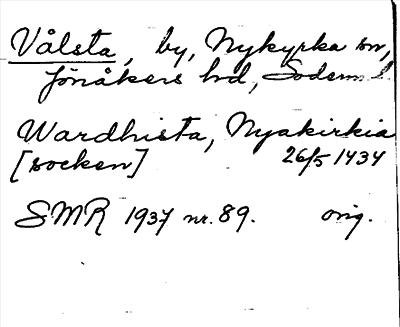 Vålsta, by, Nykyrka sn,
Jönåkers hd, Söderml
Wardhista, Nyakirkia
[socken] 26/5 1434
SMR 1937 nr. 89. orig.